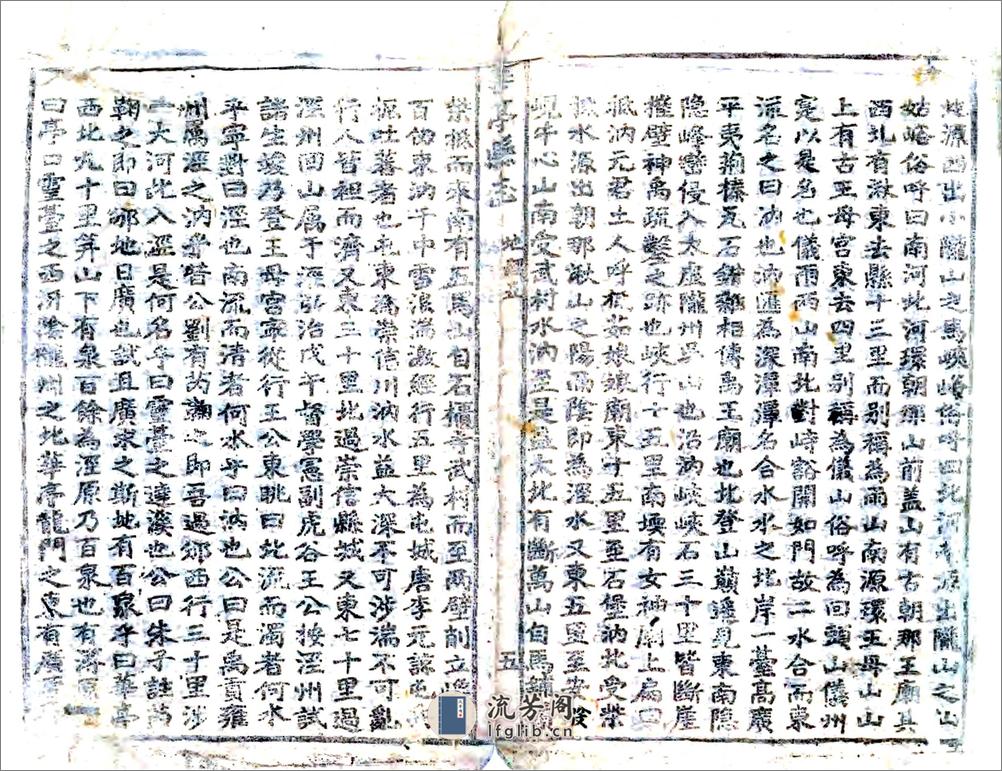 源西出小隴山之馬峽峪俗呼曰北河南源出隴山之山
姑峪俗呼曰南河北河環朝那山前盖山有古朝那王廟其
西北有湫東去縣十三里而别稱為雨山南源環王母山山
上有古王母宮東去四里别稱為儀山俗呼為回頭山儀州
寔以是名也儀雨兩山南北對峙谽開如門故二水合而東
流名之曰汭也汭匯為深潭潭名合水水之北岸一臺高廣
平夷荊榛瓦石錯雜相傳禹王廟也北登山巔遙見東南隱
隐峰巒侵入太虛隴州吳山也沿汭峽峽石三十里皆斷崖
摧壁神禹疏鑿之跡也峽行十五里南堧有女神廟上扁曰
祇汭元君土人呼茹娘娘廟東十五里至石堡汭北受柴
水源出朝那湫山之陽而陰即為涇水又東五里至安
峴牛心山南受武村水汭至是益大北有斷萬山自馬鋪
梁抵而來南有五馬山自石櫃寺武村而至兩壁削立
百仞東汭于中雪浪湍激經行五里為屯城唐李元諒屯
吐蕃者也屯東為崇信川汭水益大深不可涉湍不可亂
行人皆袒而濟又東三十里北過崇信縣城又東七十里過
涇州回山属于涇弘治戊午督學憲副虎谷王公按涇州試
諸生竣乃登王母宮寧從行王公東眺曰北流而濁者何水
乎寧對曰涇也南流而清者何水乎曰汭也公曰是禹貢雍
州属涇之汭乎昔公劉有芮鞫之即吾過邠西行三十里涉
一大河北入涇是何名乎曰靈臺之達溪也公曰朱子註芮
鞫之即曰邠地日廣也試且廣求之斯地有百泉乎曰華亭
西北九十里笄山下有泉百餘為涇原乃百泉也有溥原
曰亭曰靈臺之西汧陰隴州之北華亭龍門之東有廣
華亭縣志
地
五
流芳阁
lfglib.cn